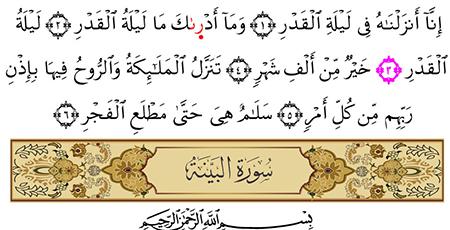 إِنَّآ أَنزَلْنَـٰهُ فِى لَيْلَةِ ٱلْقَدْرِ ﴿١﴾ وَمَآ أَدْرىٰكَ مَا لَيْلَةُ ٱلْقَدْرِ ﴿٢﴾ لَيْلَةُ
ٱلْقَدْرِ ﴿٣﴾ خَيْرٌ مِّنْ أَلْفِ شَهْرٍ ﴿٤﴾ تَنَزَّلُ ٱلْمَلَـٰٓئِكَةُ وَٱلرُّوحُ فِيهَا بِإِذْنِ
رَبِّهِم مِّن كُلِّ أَمْرٍ ﴿٥﴾ سَلَـٰمٌ هِىَ حَتَّىٰ مَطْلَعِ ٱلْفَجْرِ ﴿٦﴾
سُورَةُ البَيِّنَةِ
بِسْمِ ٱللَّهِ ٱلرَّحْمَـٰنِ ٱلرَّحِيمِ